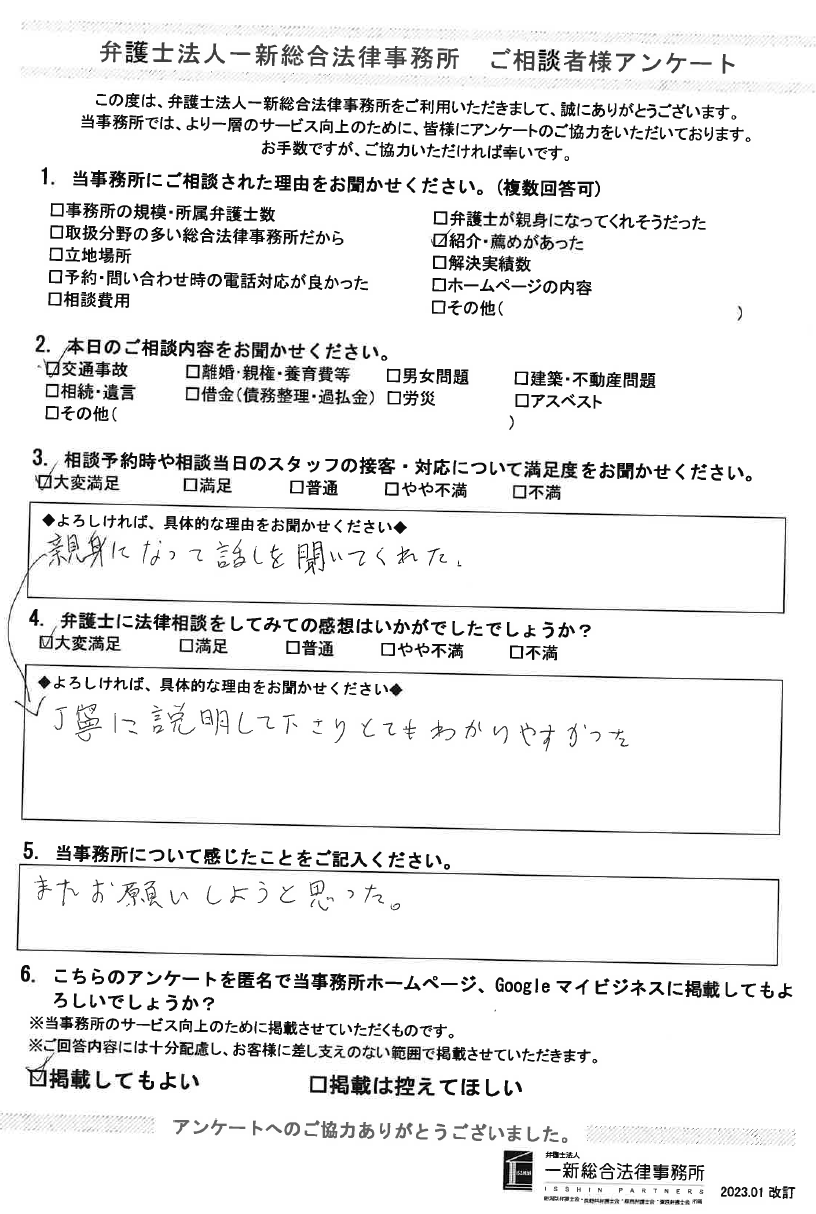 弁護士法人一新総合法律事務所　ご相談者様アンケート
この度は、弁護士法人一新総合法律事務所をご利用いただきまして、誠にありがとうございます。
当事務所では、より一層のサービス向上のために、皆様にアンケートのご協力をいただいております。
お手数ですが、ご協力いただければ幸いです。
1. 当事務所にご相談された理由をお聞かせください。(複数回答可)
□事務所の規模・所属弁護士数
□取扱分野の多い総合法律事務所だから
□立地場所
□予約・問い合わせ時の電話対応が良かった
□相談費用
□弁護士が親身になってくれそうだった
☑紹介・薦めがあった
□解決実績数
□ホームページの内容
□その他(　)
2. 本日のご相談内容をお聞かせください。
☑交通事故　□離婚・親権・養育費等　□男女問題　□建築・不動産問題
□相続・遺言　□借金(債務整理・過払金)　□労災　□アスベスト
□その他(　)
3. 相談予約時や相談当日のスタッフの接客・対応について満足度をお聞かせください。
☑大変満足　□満足　□普通　□やや不満　□不満
◆よろしければ、具体的な理由をお聞かせください◆
親身になって話しを聞いてくれた。
4. 弁護士に法律相談をしてみての感想はいかがでしたでしょうか？
☑大変満足　□満足　□普通　□やや不満　□不満
◆よろしければ、具体的な理由をお聞かせください◆
丁寧に説明して下さりとてもわかりやすかった
5. 当事務所について感じたことをご記入ください。
またお願いしようと思った。
6. こちらのアンケートを匿名で当事務所ホームページ、Googleマイビジネスに掲載してもよ
ろしいでしょうか？
※当事務所のサービス向上のために掲載させていただくものです。
※ご回答内容には十分配慮し、お客様に差し支えのない範囲で掲載させていただきます。
☑掲載してもよい　□掲載は控えてほしい
アンケートへのご協力ありがとうございました。
弁護士法人
一新総合法律事務所
ISSHIN PARTNERS
2023.01 改訂